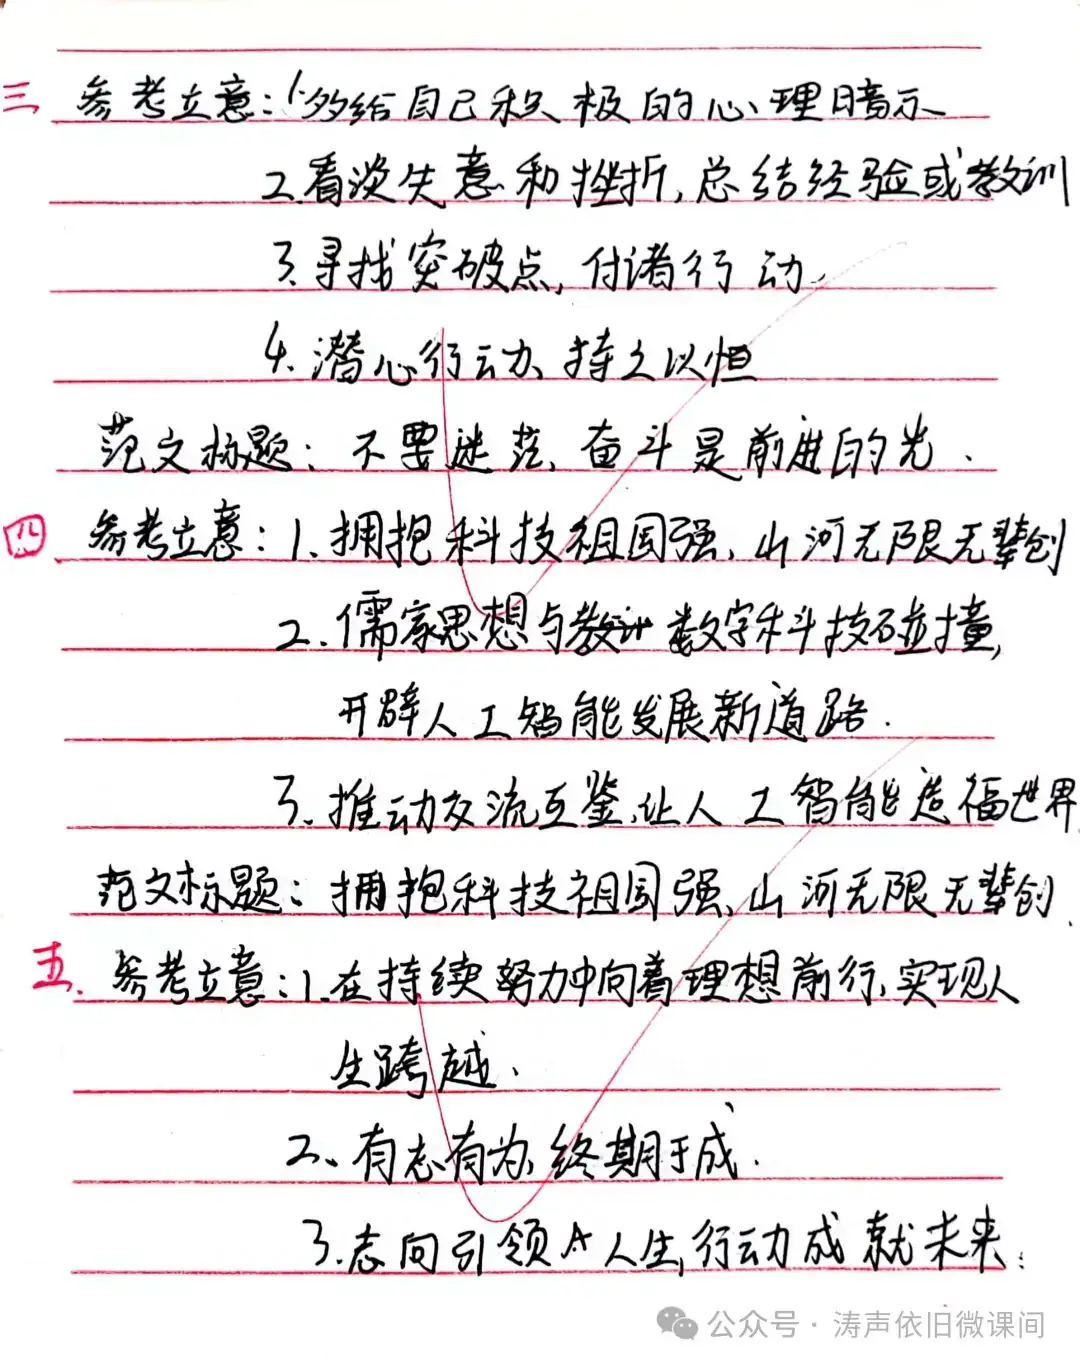 三 参考立意:1.多给自己积极的心理暗示
2.看淡失意和挫折,总结经验或教训
3.寻找突破点,付诸行动.
4.潜心行动、持之以恒
范文标题:不要迷茫,奋斗是前进的光.
四 参考立意:1.拥抱科技祖国强,山河无限无辈创
2.儒家思想与数字科技碰撞,
开辟人工智能发展新道路.
3.推动交流互鉴,让人工智能造福世界
范文标题:拥抱科技祖国强,山河无限无辈创.
五.参考立意:1.在持续努力中向着理想前行,实现人
生跨越.
2、有志有为,终期于成.
3.志向引领人生,行动成就未来.
公众号·涛声依旧微课间